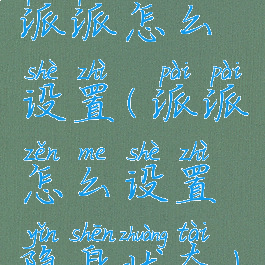 派派怎么
shè zhì
设置(派派
pài pài
zěn me shè zhì
怎么设置
yǐn shēn zhuàng tài
隐身状态)